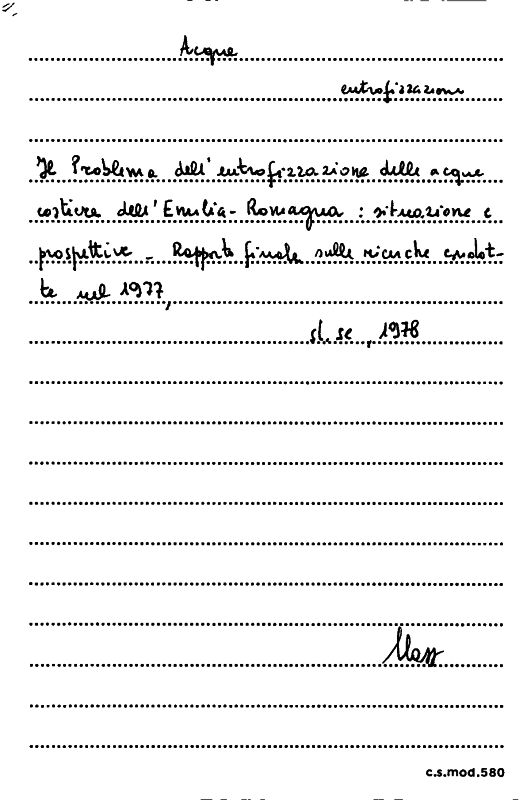 Acque
eutrofizzazione
Il Problema dell'eutrofizzazione delle acque
costiere dell'Emilia-Romagna : situazione e
prospettive - Rapporto finale sulle ricerche condot-
te nel 1977,
sl. se , 1978
c.s.mod.580